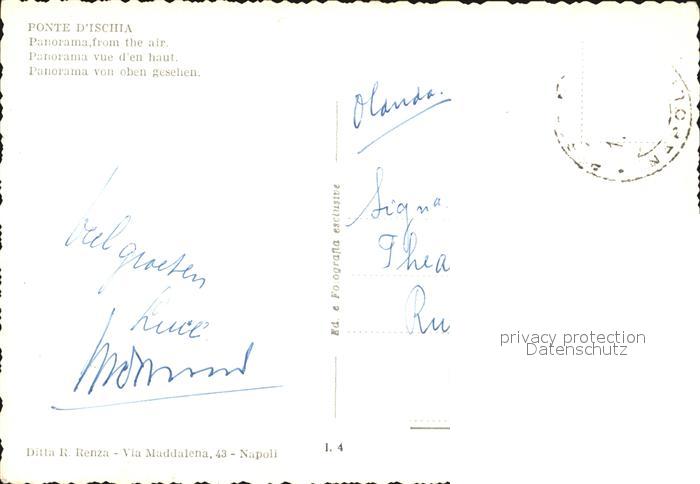 PONTE D'ISCHIA
Panorama, from the air.
Panorama vue d'en haut.
Panorama von oben gesehen.
Olanda.
Ed. e Fotografia esclusive
Signa
Thea
Ru
veel
groeten
NAPOLI
privacy protection
Datenschutz
Ditta R. Renza - Via Maddalena, 43 - Napoli
I. 4